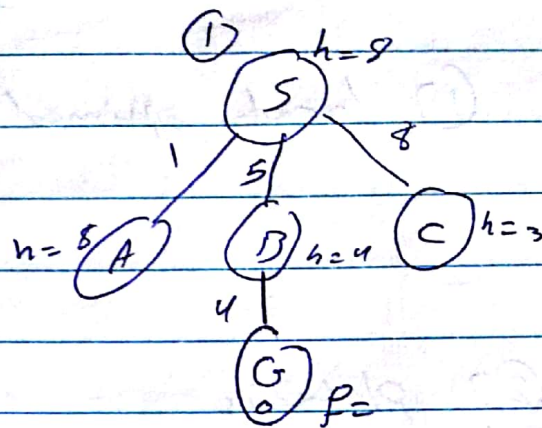 ①
h=8
S
1
5
8
h=8
A
B
h=4
C
h=3
4
G
0
f=